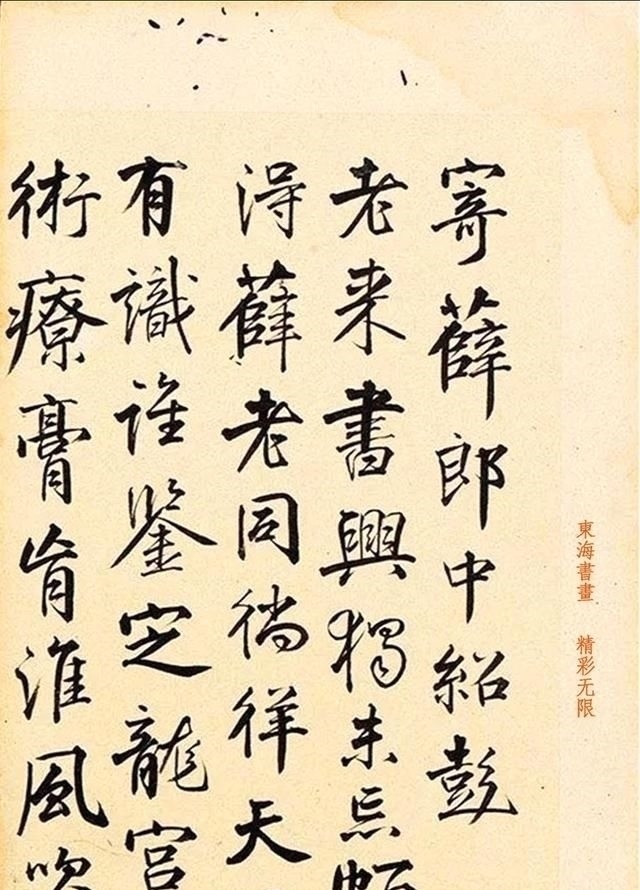 寄薛郎中紹彭
老来書興獨未忘頗
得薛老同徜徉天
有識誰鑒定龍宮
術療膏肓淮風吹
東海書畫 精彩无限